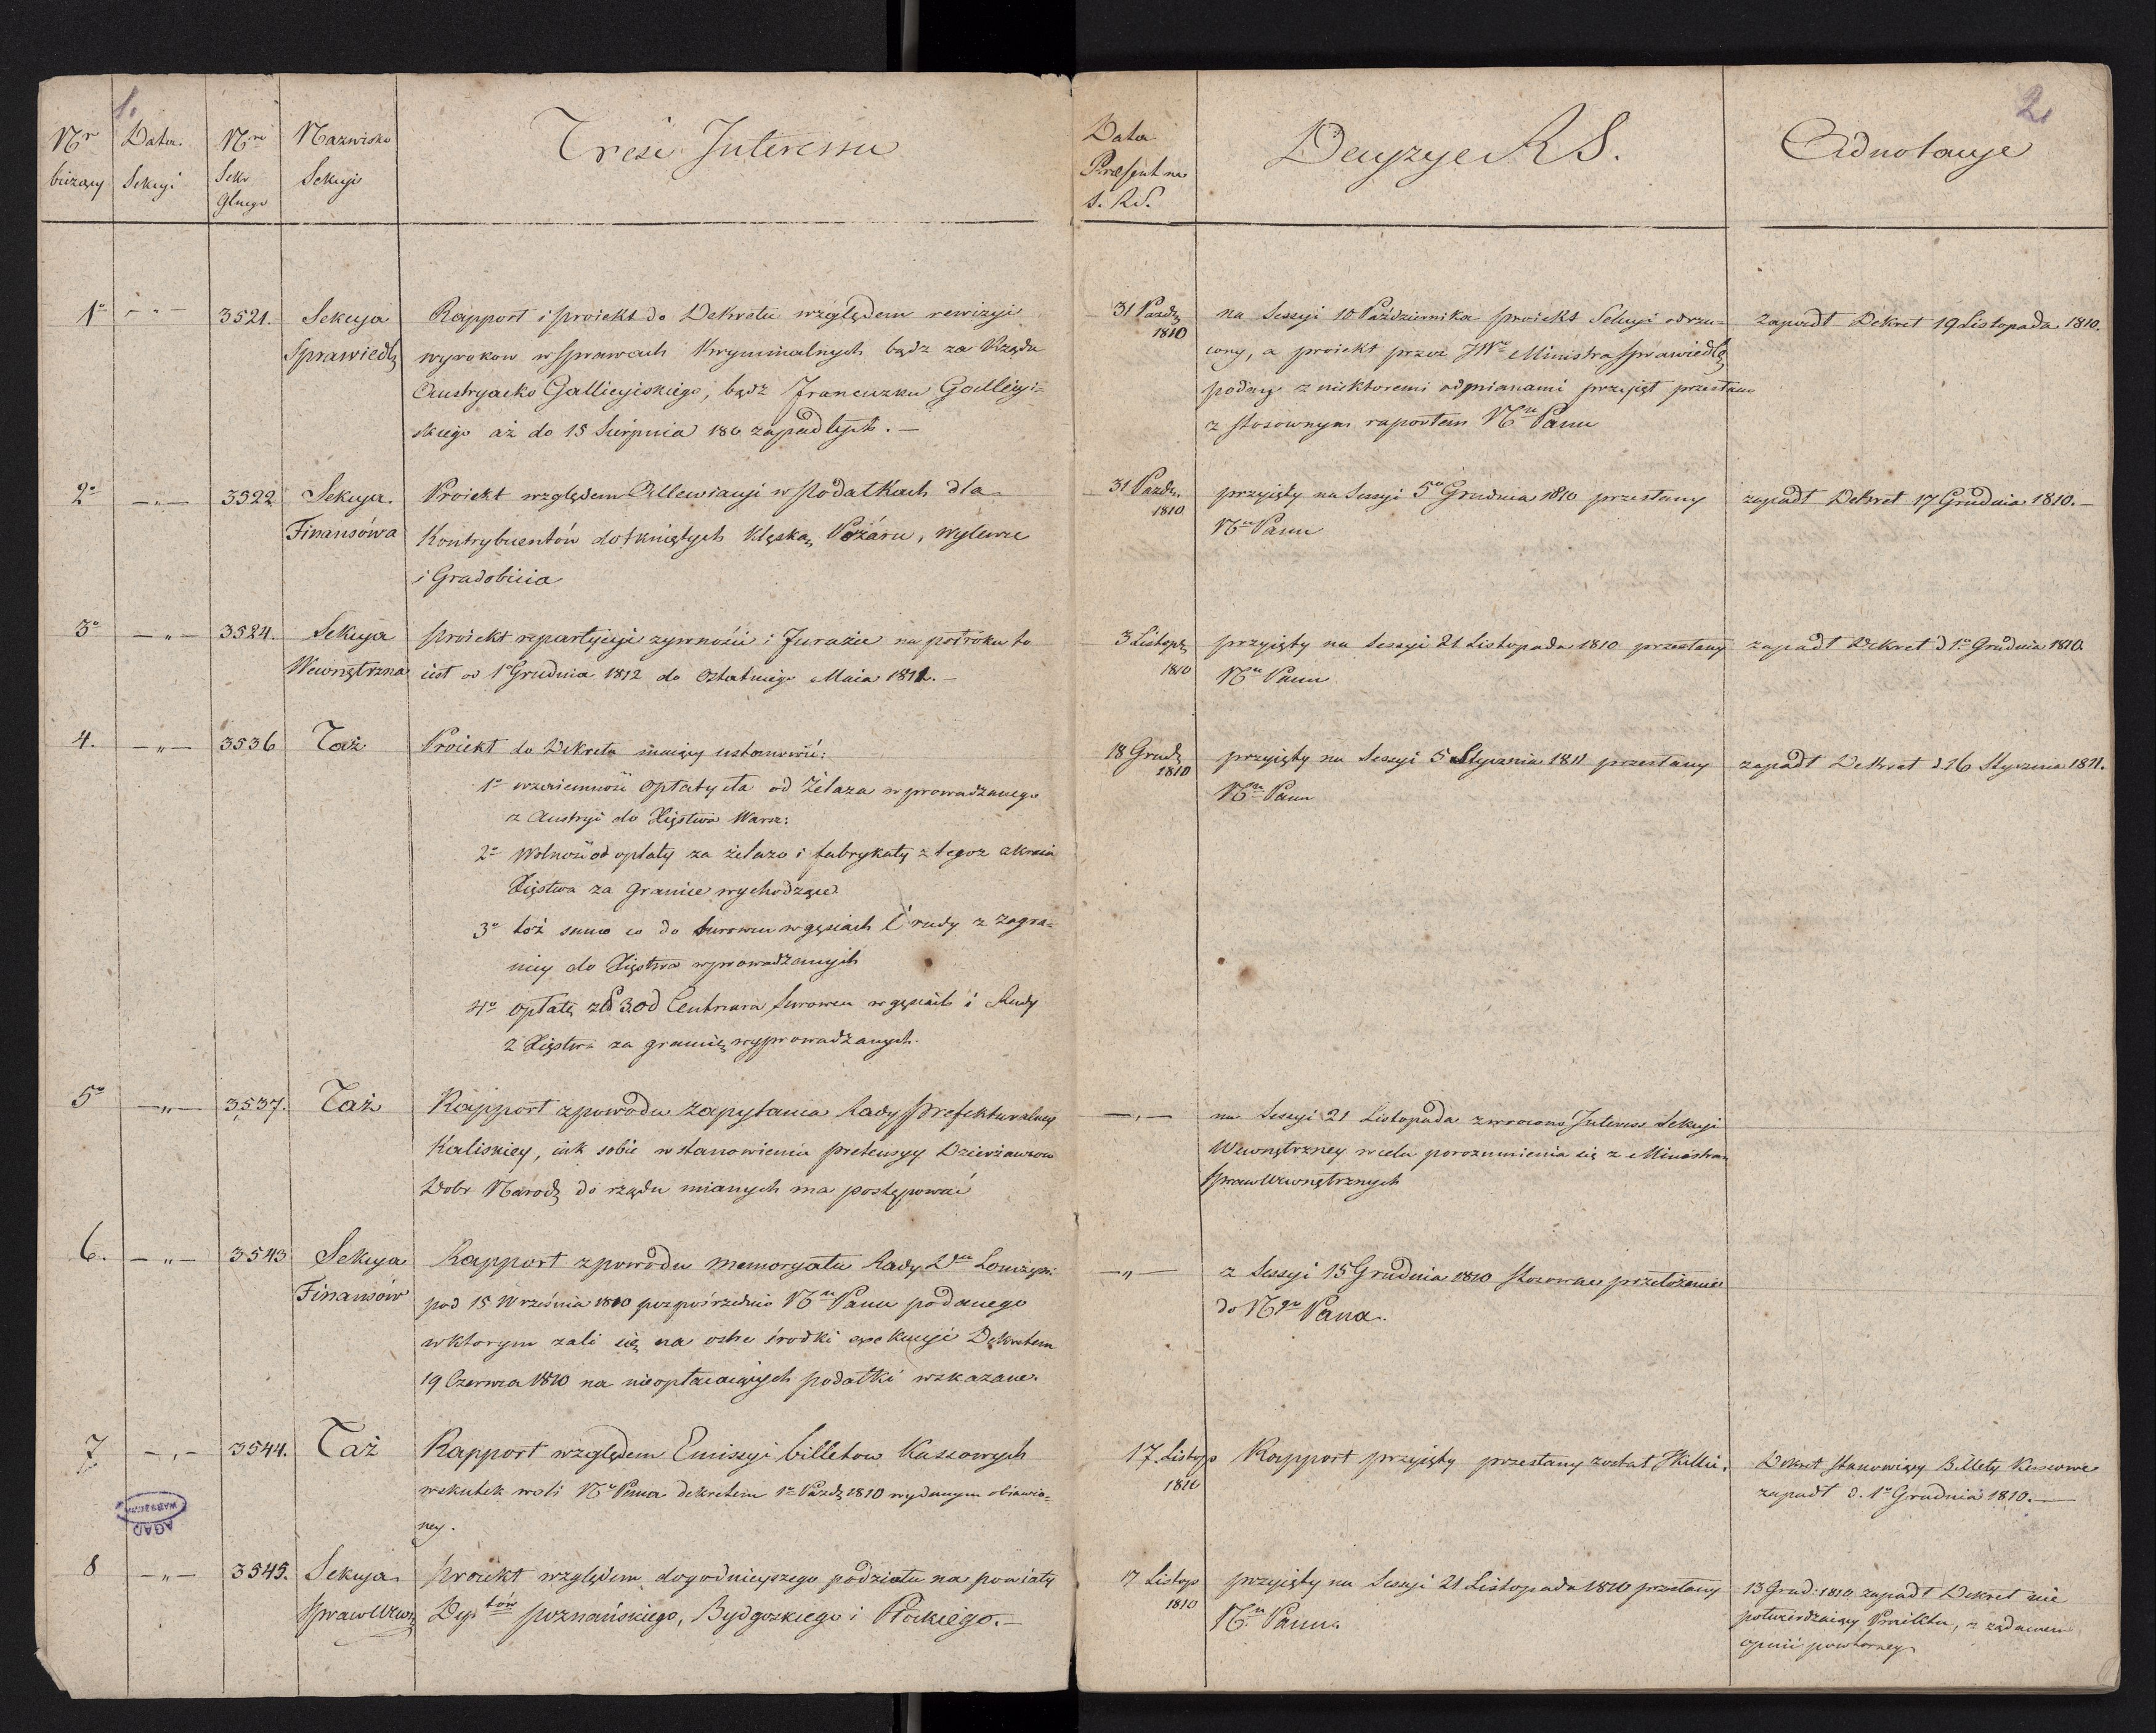 1.
2
Nr bieżący
Data Sekcyi
Nro Sekr Glnego
Nazwisko Sekcyi
Treść Interessu
Data Praesent na s. R.S.
Decyzye R S.
Adnotacye
1o
3521.
Sekcya
Sprawiedl
Rapport i proiekt do Dekretu względem rewizyi
wyrokow w sprawach kryminalnych bądz za Rządu
Austryacko Gallicyiskiego, bądz Francuzko Gallicyi=
skiego aż do 15 Sierpnia 180 zapadłych. —
31 Pazdz
1810
na Sessyi 10 Października proiekt Sekcyi odrzu-
cony, a proiekt przez JWo Ministra Sprawiedl
podany z niektoremi odmianami przyięt przesłano
z stosownym raportem Nu Panu
zapadł Dekret 19 Listopada 1810.
2o
3522
Sekcya
Finansówa
Proiekt względem Allewiacyi w Podatkach dla
Kontrybuentów dotkniętych klęską Pożaru, wylewu
i Gradobicia
31 Pazdz.
1810
przyięty na Sessyi 5o Grudnia 1810 przesłany
Nu Panu
zapadł Dekret 17 Grudnia 1810. —
3o
3524.
Sekcya
Wewnętrzna
proiekt repartycyi zywności i Furażu na połroku to
iest od 1o Grudnia 1812 do Ostatniego Maia 1812. —
3 Listop
1810
przyięty na Sessyi 21 Listopada 1810 przesłany
Nu Panu
zapadł Dekret d 1o Grudnia 1810.
4.
3536
Taż
Proiekt do Dekretu maiący ustanowić:
1o wzaiemność opłaty cła od Żelaza wprowadzanego
z Austryi do Xięstwa Warsz:
2o Wolność od opłaty za żelazo i fabrykaty z tegoż z kraiu
Xięstwa za granice wychodzące
3o toż samo co do surowcu w gęsiach i rudy z zagra=
nicy do Xięstwa wprowadzanych
4o opłatę złt 3. od Centnara surowcu w gęsiach i Rudy
z Xięstwa za granicę wyprowadzanych.
18 Grud
1810
przyięty na Sessyi 5 Stycznia 1811 przesłany
Nu Panu
zapadł Dekret d. 16 Stycznia 1811.
5o
3537.
Taż
Rapport zpowodu zapytania Rady Prefekturalney
Kaliskiey, iak sobie w stanowieniu pretensyy Dzierżawcow
Dobr Narod do rządu mianych ma postępować
na Sessyi 21 Listopada zwrocono Interess Sekcyi
Wewnętrzney w celu porozumienia się z Ministrem
Spraw Wewnętrznych
6.
3543
Sekcya
Finansów
Rapport zpowodu memoryału Rady Dtu Łomżyn:
pod 15 Września 1810 bezpośrzednio Nu Panu podanego
wktorym zali się na ostre środki exekucyi Dekretem
19 Czerwca 1810 na nieopłacaiących podatki wskazane.
z Sessyi 15 Grudnia 1810 stosowne przełożenie
do Ngo Pana.
7
3544.
Taż
Rapport względem Emissyi billetow Kassowych
wskutek woli No Pana dekretem 1o Pazdz 1810 wydanym obiawio=
ney.
17 Listop
1810
Rapport przyięty przesłany został
Dekret stanowiący Billety Kassowe
zapadł d. 1o Grudnia 1810. —
8
3545.
Sekcya
Spraw Wewn
proiekt względem dogodnieyszego podziału na powiaty
Deptów poznańskiego, Bydgoskiego i Płockiego. —
17 Listop
1810
przyięty na Sessyi 21 Listopada 1810 przesłany
Nu Panu
13 Grud: 1810 zapadł Dekret nie
potwierdzaiący Proiektu, z żądaniem
opinii powtorney
AGAD
WARSZAWA